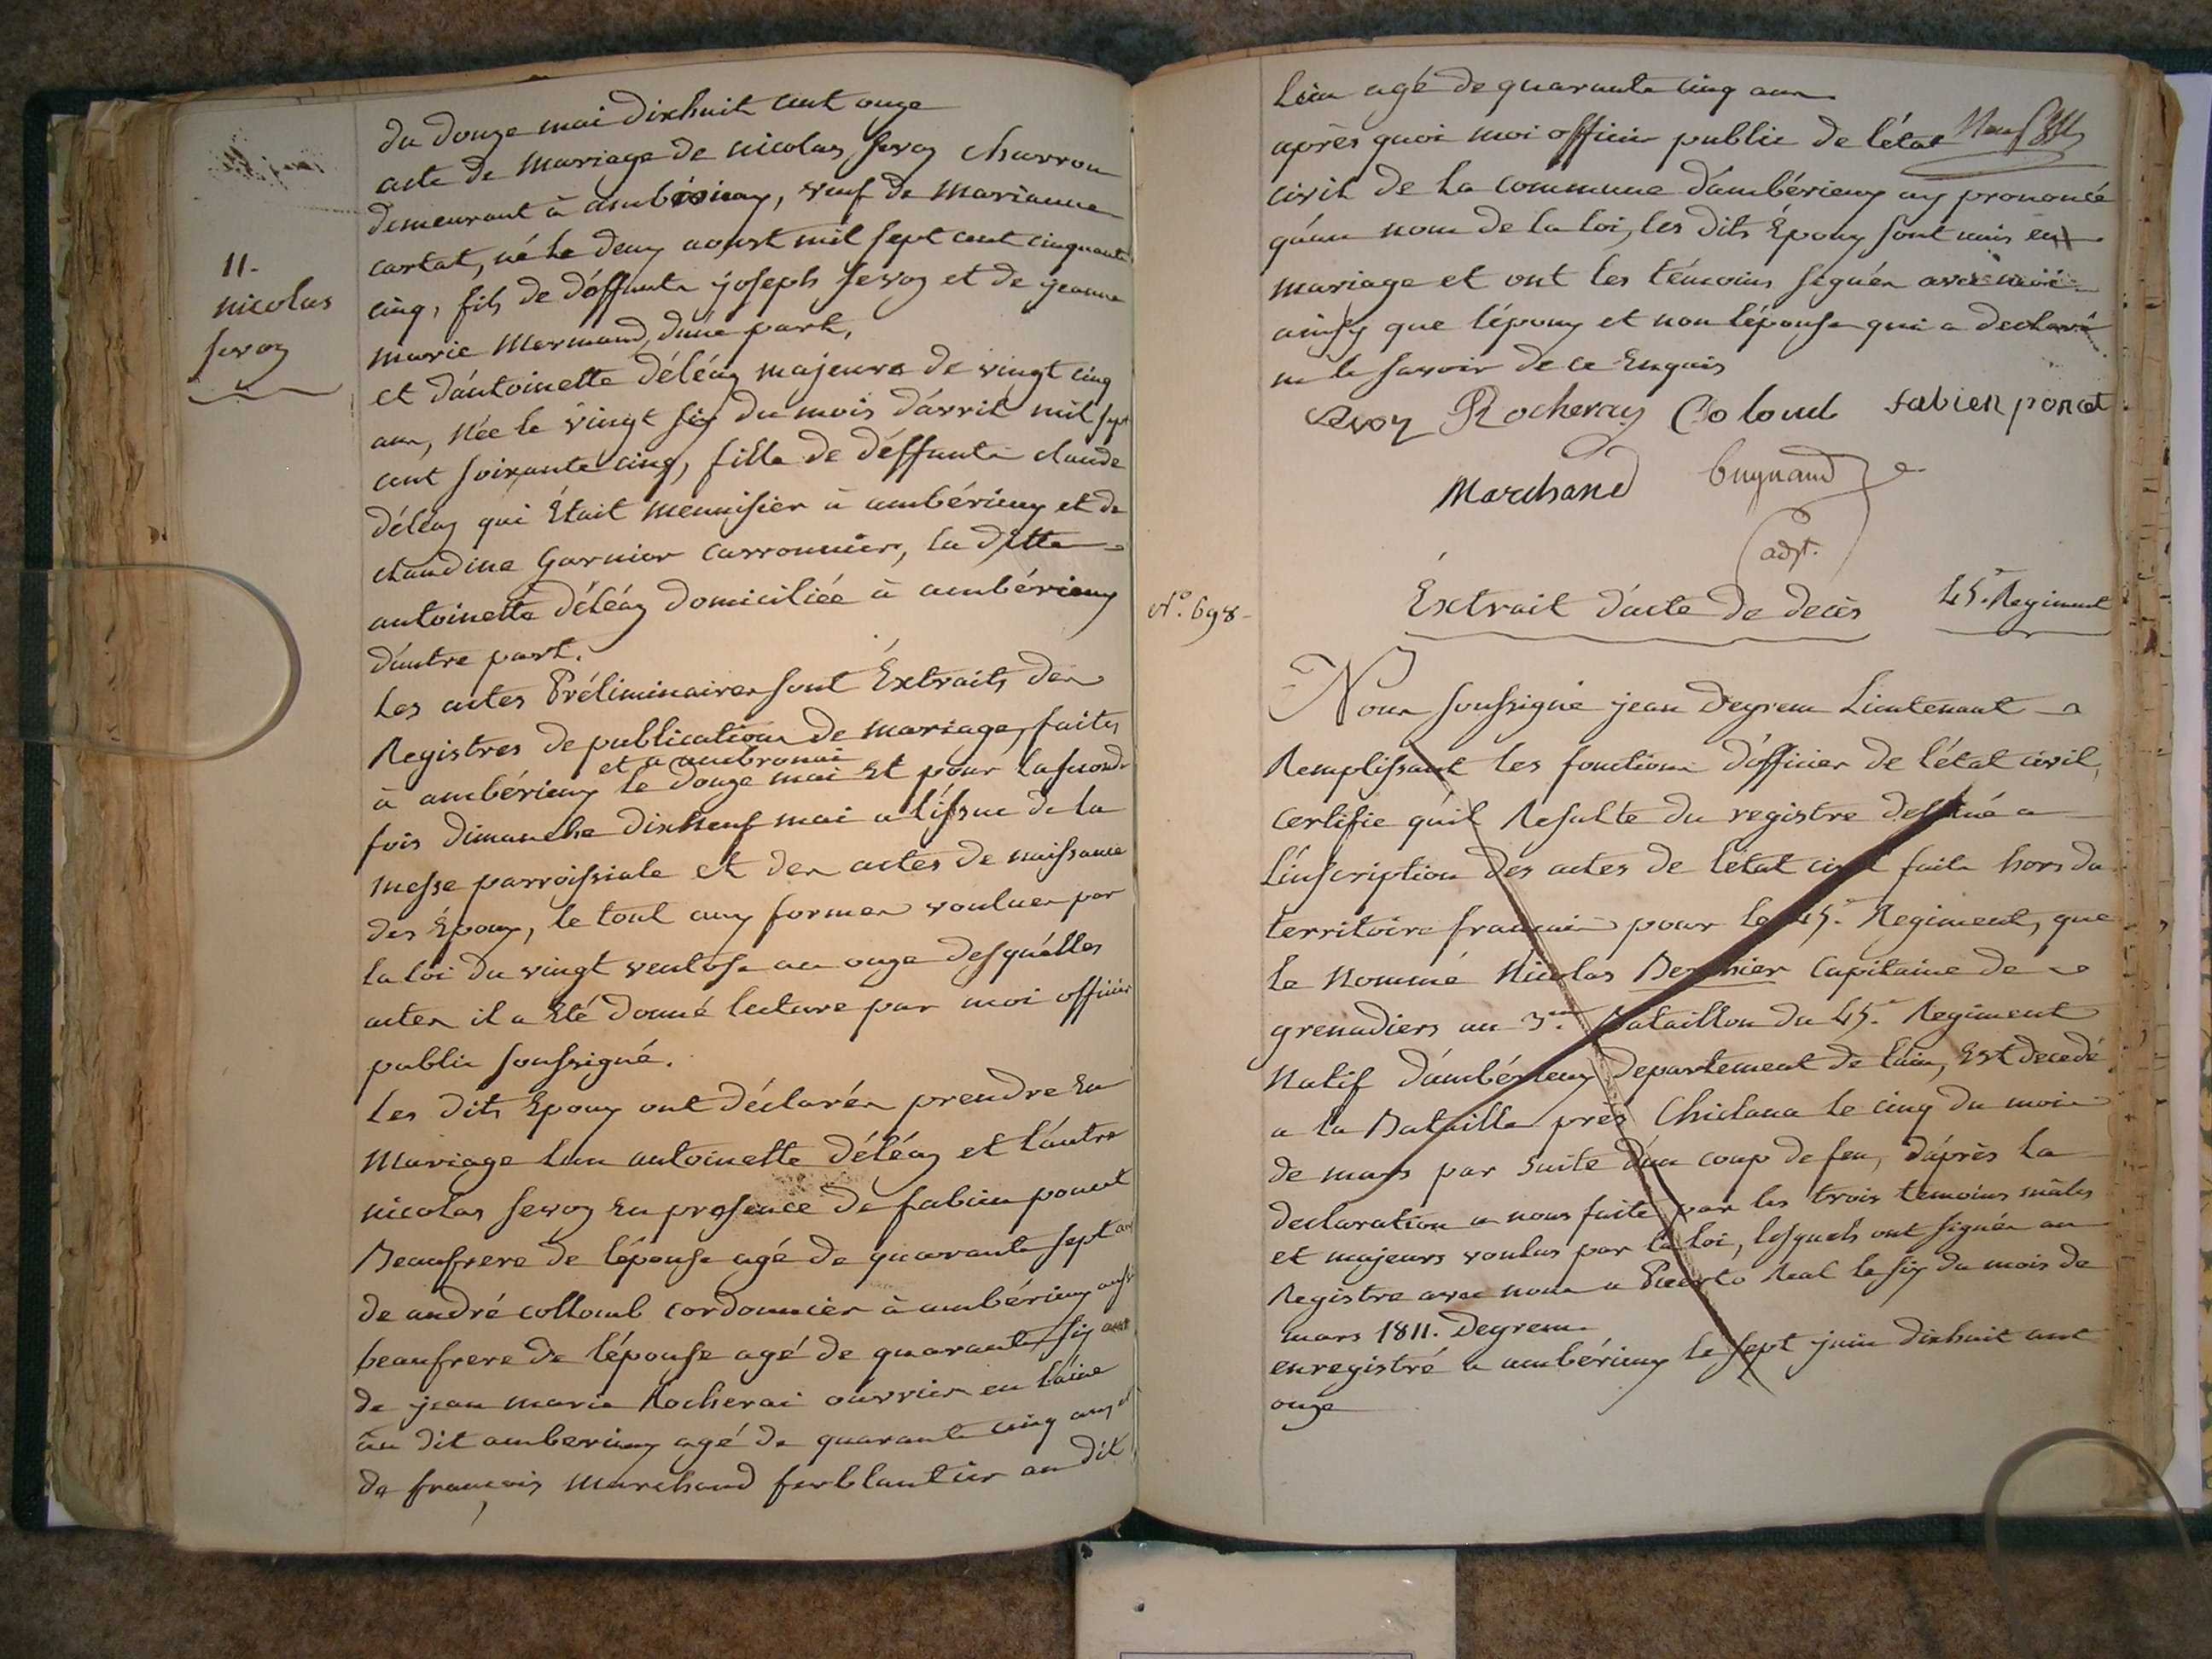 du douze mai dixhuit cent onze
acte de mariage de nicolas servoz charron
demeurant à ambronay, veuf de marianne
cartat, né le deux aoust mil sept cent cinquante
cinq, fils de déffunts joseph servoz et de jeanne
marie Mermand, d'une part,
et d'antoinette déléaz majeure de vingt cinq
ans, Née le vingt six du mois d'avril mil sept
cent soixante cinq, fille de déffunts claude
déléaz qui Etait menuisier à ambérieux et de
claudine garnier carronnier, la ditte
antoinette déléaz domiciliée à ambérieux
d'autre part.
Les actes Préliminaires sont Extraits des
Registres de publications de mariage, faites
et a ambronai
à ambérieux le douze mai Et pour la seconde
fois dimanche dixneuf mai a l'issue de la
messe parroissiale et des actes de naissance
des Epoux, le tout aux formes voulues par
la loi du vingt ventose an onze desquélles
actes il a Eté donné lecture par moi officier
public soussigné.
Les dits Epoux ont déclarés prendre En
Mariage l'un antoinette déléaz et l'autre
nicolas servoz En presence de fabien poncet
Beaufrere de l'épouse agé de quarante sept ans
de andré collomb cordonnier à ambérieux aussi
beaufrere de l'épouse agé de quarante six ans
de jean marie Rocherai ouvrier en laine
au dit amberieux agé de quarante cinq ans et
de françois marchand ferblantier au dit
11.
nicolas
servoz
Lieu agé de quarante cinq ans
après quoi moi officier public de l'état
civil de la commune d'ambérieux ay prononcé
qu'au nom de la loi, les dits Epoux sont unis en
mariage et ont les témoins signés avec moi
ainsy que l'époux et non l'épouse qui a declaré
ne le savoir de ce Enquis
Servoz Rocheray Coloml fabien poncet
Marchand buynand
adjt.
N.º 698
Extrait d'acte de decès 45.e Regiment
Nous soussigné jean Degrem Lieutenant
Remplissant les fonctions d'officier de l'état civil,
certifie qu'il Resulte du registre destiné a
L'inscription des actes de l'etat civil faits hors du
territoire français pour le 45.e Regiment, que
le Nommé Nicolas Berthier Capitaine de
grenadiers au 3.me Bataillon du 45.e Regiment
Natif d'ambérieux departement de l'ain, Est decedé
a la Bataille près Chiclana le cinq du mois
de mars par suite d'un coup de feu, d'après la
declaration a nous faite par les trois temoins mâles
et majeurs voulus par la loi, lesquels ont signés au
Registre avec nous a Puerto Real le six du mois de
mars 1811. Degrem
enregistré a ambérieux le sept juin dixhuit cent
onze